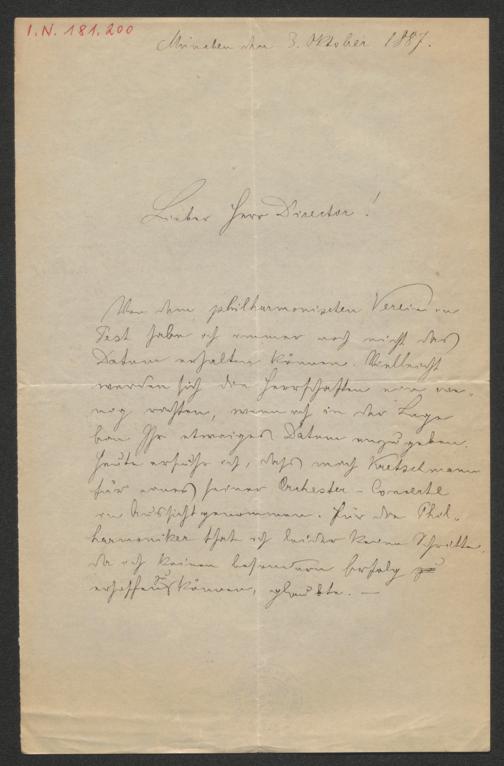 I.N. 181.200
München den 3. Oktober 1887.
Lieber Herr Director!
Von dem philharmonischen Verein in
Pest habe ich immer noch nicht das
Datum erhalten können. Vielleicht
werden sich die Herrschaften ein we-
nig richten, wenn ich in der Lage
bin Ihr etwaiges Datum anzugeben.
Heute erfuhr ich, dass mich Kretschmann
für eines seiner Orchester-Concerte
in Aussicht genommen. Für die Phil-
harmoniker that ich leider keine Schritte,
da ich keinen besondern Erfolg
erhoffen zu können, glaubte. —